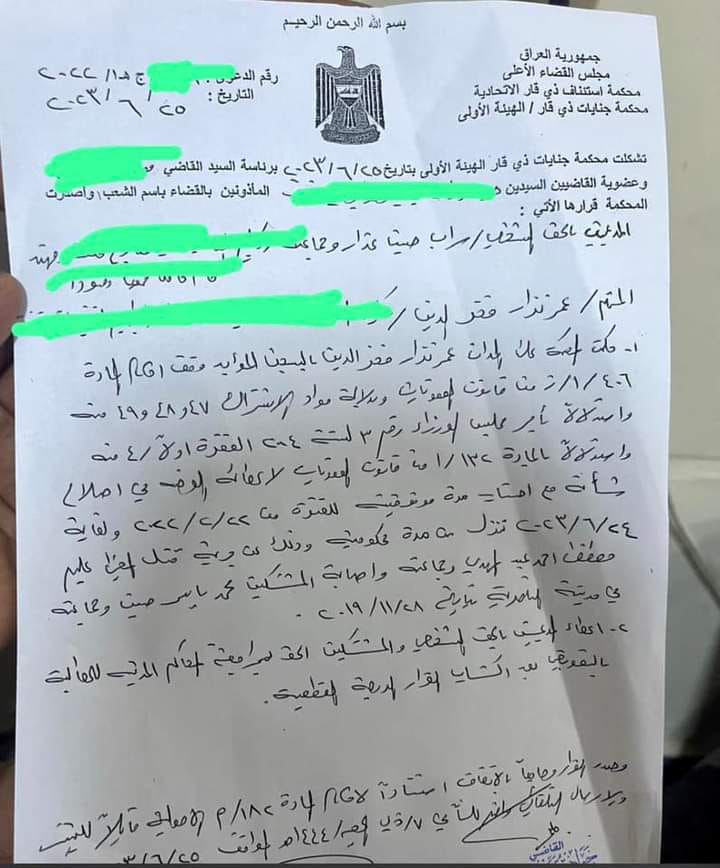 بسم الله الرحمن الرحيم
جمهورية العراق
مجلس القضاء الأعلى
محكمة استئناف ذي قار الاتحادية
محكمة جنايات ذي قار / الهيئة الأولى
رقم الدعوى : ج هـ١/ ٢٠٢٢
التاريخ : ٢٥ / ٦ / ٢٠٢٣
تشكلت محكمة جنايات ذي قار الهيئة الأولى بتاريخ ٢٠٢٣/٦/٢٥ برئاسة السيد القاضي
وعضوية القاضيين السيدين المأذونين بالقضاء باسم الشعب وأصدرت
المحكمة قرارها الآتي :
المدعين بالحق الشخصي / سراب عذار وجماعته
المتهم / عمر نزار فخر الدين /
١- حكمت المحكمة على المدان عمر نزار فخر الدين بالسجن المؤبد وفق احكام المادة
٤٠٦ /١/ من قانون العقوبات وبدلالة مواد الاشتراك ٤٧ و ٤٨ و ٤٩ منه
واستدلالاً بأمر مجلس الوزراء رقم ٣ لسنة ٢٠٠٤ الفقرة اولاً /٤ منه
واستدلالاً بالمادة ١٣٢ /١ من قانون العقوبات لاعطائه الفرصة في اصلاح
شأنه مع احتساب مدة موقوفيته للفترة من ٢٠٢٢/٢/٢٢ ولغاية
٢٠٢٣/٦/٢٤ تنزل من مدة محكوميته وذلك عن جريمة قتل المجنى عليهم
مصطفى احمد عبد الهدي وجماعته واصابة المشتكين محمد ياسر وجماعته
في مدينة الناصرية بتاريخ ٢٠١٩/١١/٢٨ .
٢- اعطاء المدعين بالحق الشخصي والمشتكين الحق بمراجعة المحاكم المدنية للمطالبة
بالتعويض بعد اكتساب القرار الدرجة القطعية .
وصدر القرار وجاهياً بالاتفاق استناداً لاحكام المادة ١٨٢/ الاصولية قابلاً للتمييز
١٤٤٤هـ الموافق ٢٥/٦/
القاضي